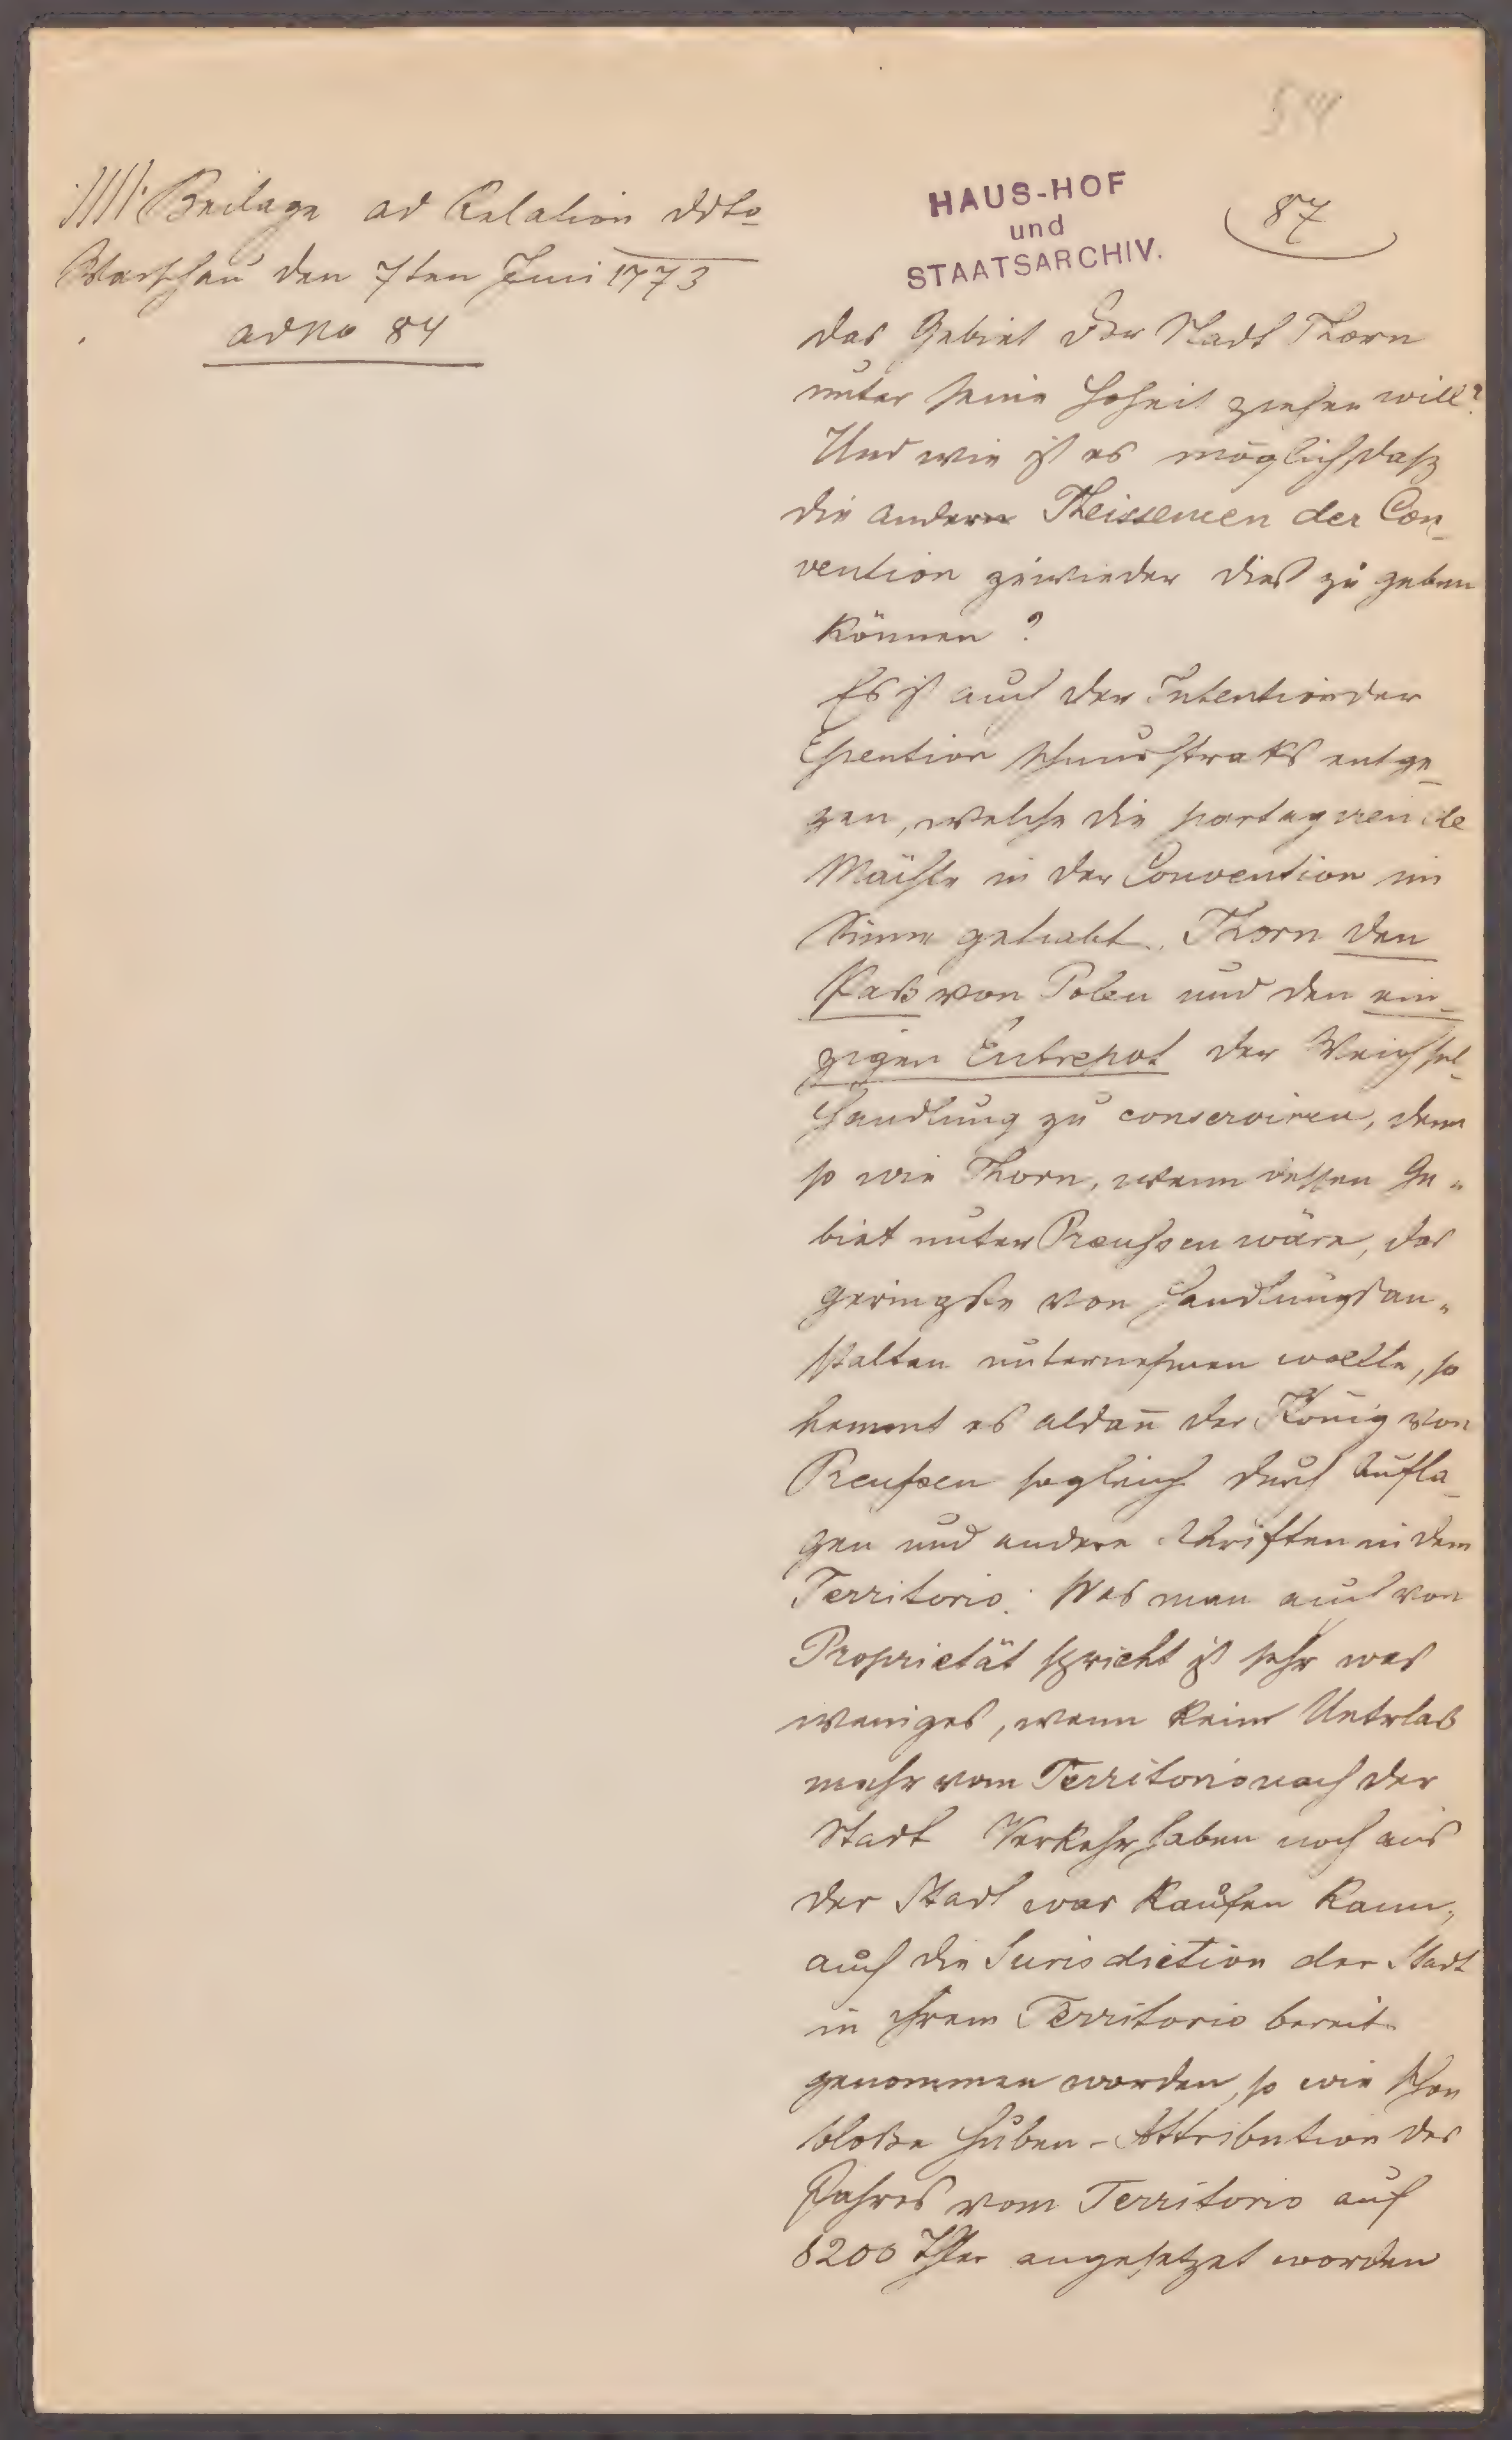 54
Beilage ad Relation ddto
Warschau den 7ten Juni 1773
ad No 84
HAUS-HOF
und
STAATSARCHIV.
87
das Gebiet der Stadt Thorn
unter seine Hoheit ziehen will?
Und wie ist es möglich, daß
die andern der Con-
vention zuwieder dieß zu geben
können?
Es ist auch der Intention der
schnurstraks entge-
gen, welche die partagirende
Mächte in der Convention im
Sinne gehabt, Thorn den
Paß von Polen und den ein-
zigen Entrepot der Weichsel-
handlung zu conserviren, denn
so wie Thorn, wenn dessen Ge-
biet unter Preußen wäre, das
geringste von Handlungsan-
stalten unternehmen wollte, so
hemmt es aldan̄ der König von
Preußen sogleich durch Aufla-
gen und andere in dem
Territorio. Was man auch von
Proprietät spricht ist sehr was
weniges, wenn kein
mehr vom Territorio nach der
Stadt Verkehr haben noch aus
der Stadt was kaufen kann,
auch die Jurisdiction der Stadt
in ihrem Territorio bereit
genommen worden, so wie schon
bloße Huben-Attribution des
Jahres vom Territorio auf
8200 Thler angesetzet worden